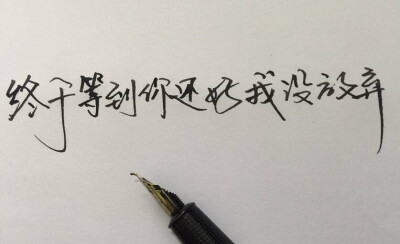 终于等到你还好我没放弃